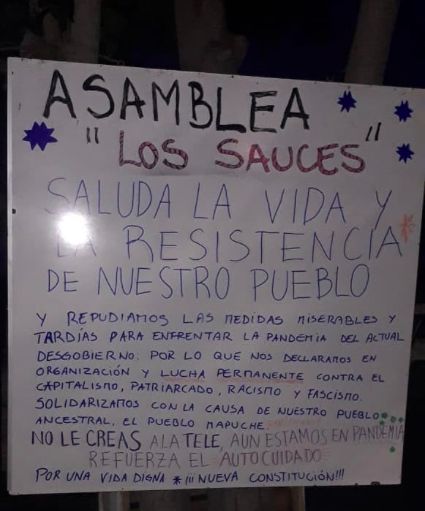 ASAMBLEA
"LOS SAUCES"
SALUDA LA VIDA Y
LA RESISTENCIA
DE NUESTRO PUEBLO
Y REPUDIAMOS LAS MEDIDAS MISERABLES Y
TARDÍAS PARA ENFRENTAR LA PANDEMIA DEL ACTUAL
DESGOBIERNO. POR LO QUE NOS DECLARAMOS EN
ORGANIZACIÓN Y LUCHA PERMANENTE CONTRA EL
CAPITALISMO, PATRIARCADO, RACISMO Y FASCISMO.
SOLIDARIZAMOS CON LA CAUSA DE NUESTRO PUEBLO
ANCESTRAL, EL PUEBLO MAPUCHE.
NO LE CREAS A LA TELE, AUN ESTAMOS EN PANDEMIA
REFUERZA EL AUTOCUIDADO
POR UNA VIDA DIGNA * ¡¡¡ NUEVA CONSTITUCIÓN!!!